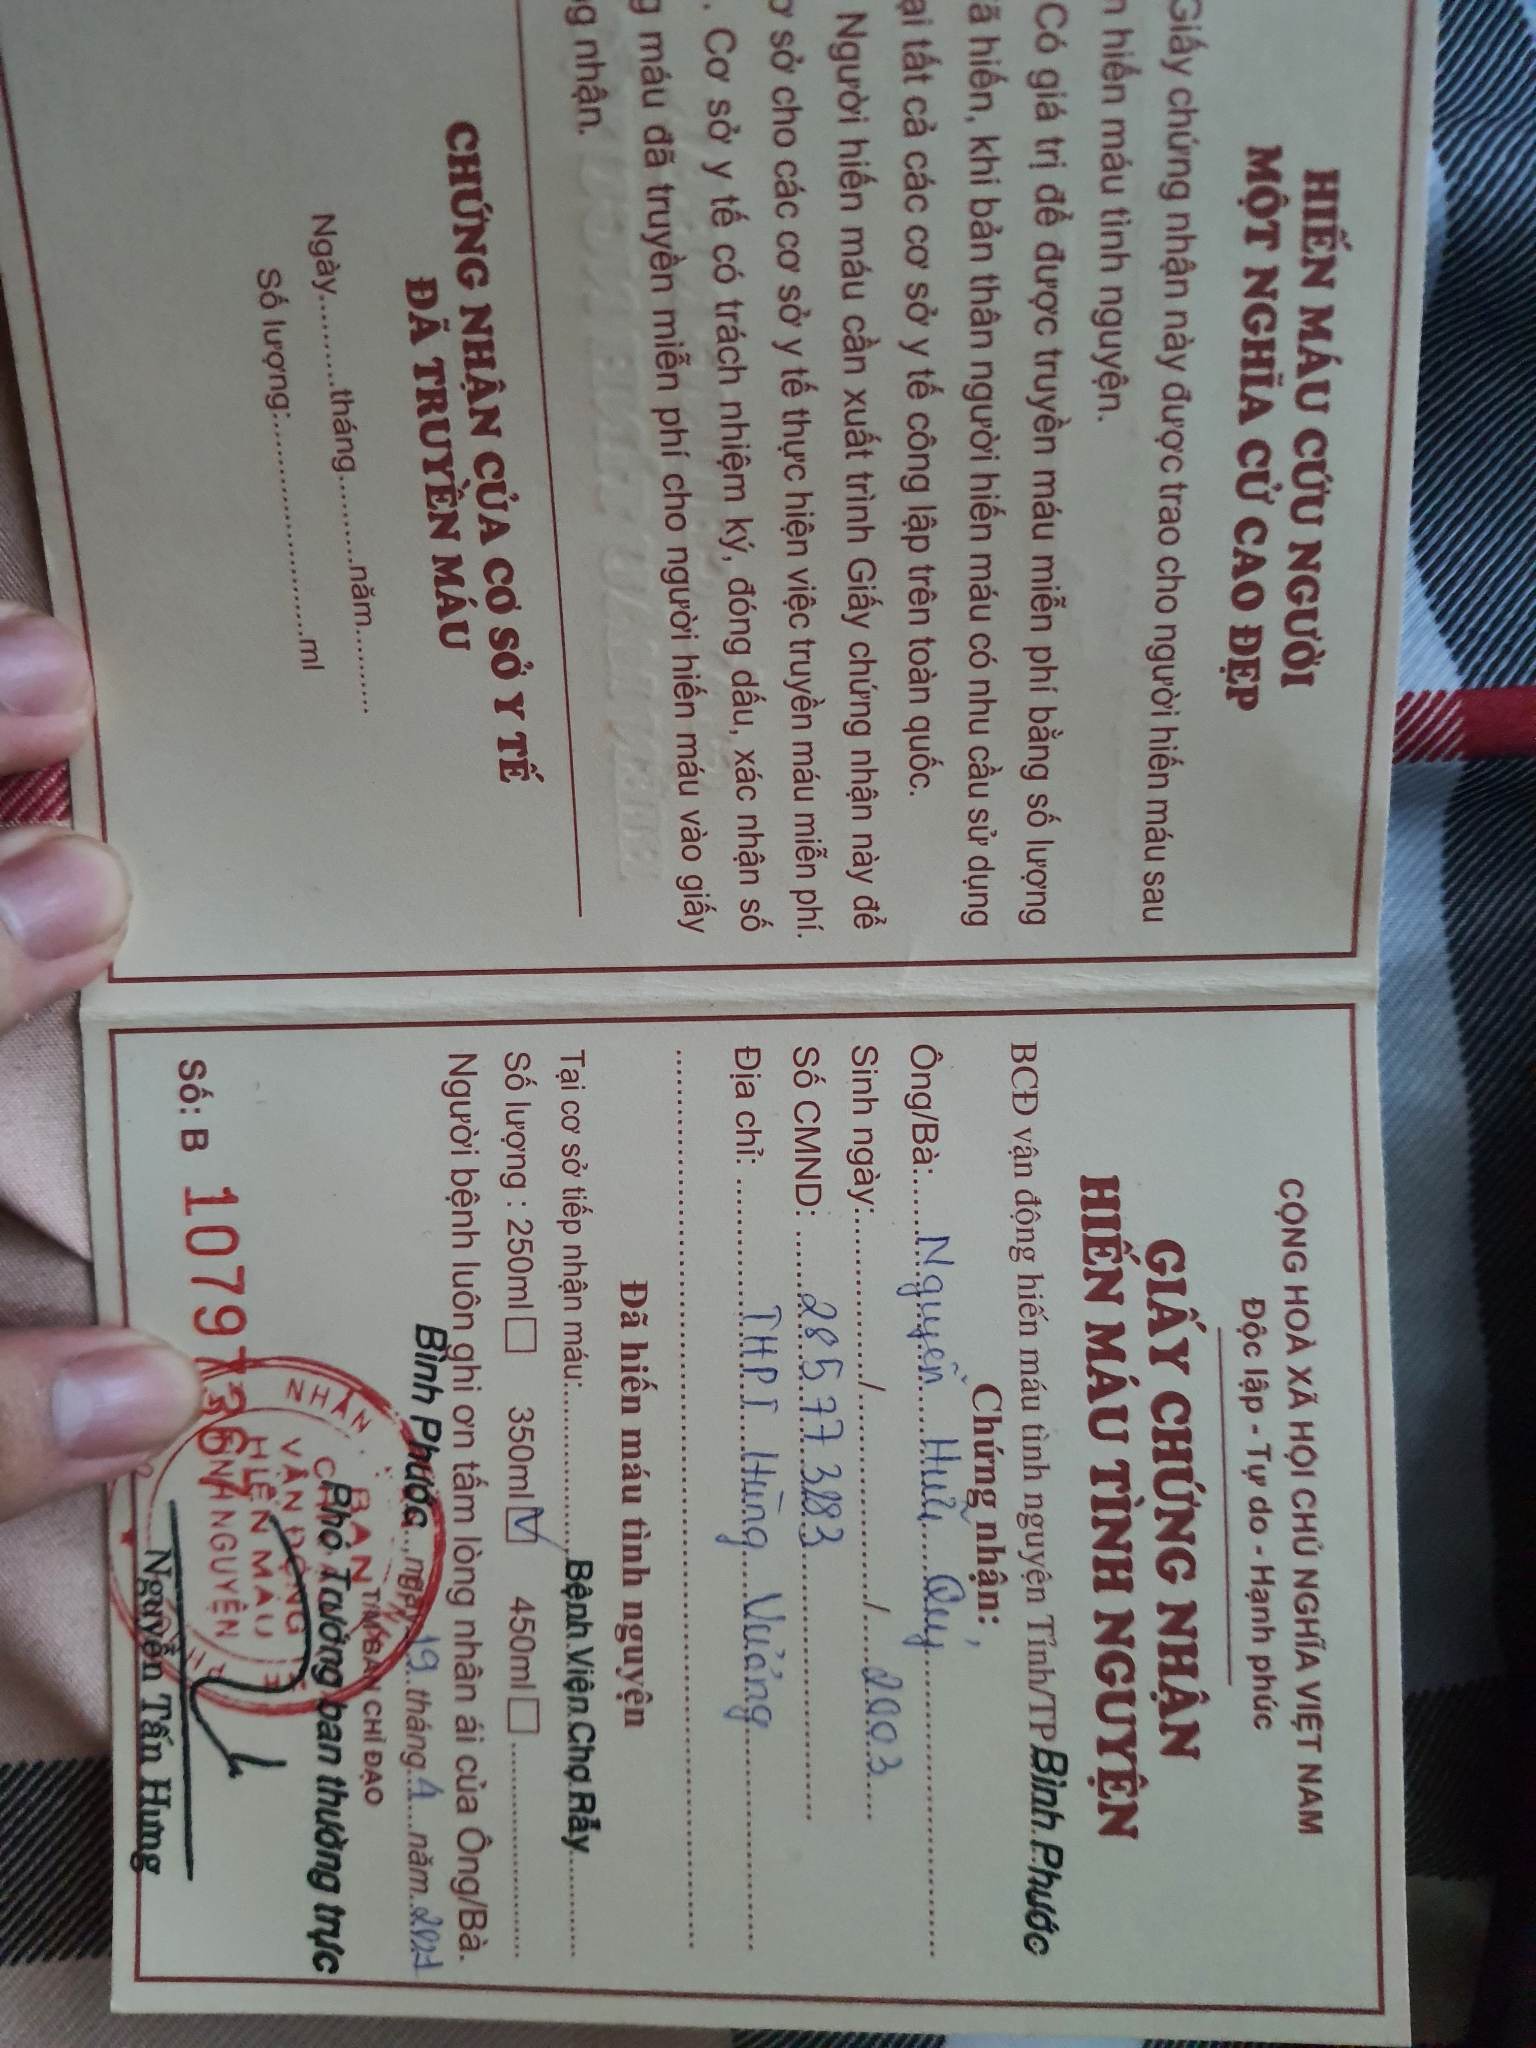 HIẾN MÁU CỨU NGƯỜI
MỘT NGHĨA CỬ CAO ĐẸP
Giấy chứng nhận này được trao cho người hiến máu sau
hiến máu tình nguyện.
Có giá trị để được truyền máu miễn phí bằng số lượng
hiến, khi bản thân người hiến máu có nhu cầu sử dụng
tất cả các cơ sở y tế công lập trên toàn quốc.
Người hiến máu cần xuất trình Giấy chứng nhận này để
sở cho các cơ sở y tế thực hiện việc truyền máu miễn phí.
. Cơ sở y tế có trách nhiệm ký, đóng dấu, xác nhận số
máu đã truyền miễn phí cho người hiến máu vào giấy
nhận.
CHỨNG NHẬN CỦA CƠ SỞ Y TẾ
ĐÃ TRUYỀN MÁU
Ngày.........tháng..........năm..........
Số lượng:.........................ml
CỘNG HOÀ XÃ HỘI CHỦ NGHĨA VIỆT NAM
Độc lập - Tự do - Hạnh phúc
GIẤY CHỨNG NHẬN
HIẾN MÁU TÌNH NGUYỆN
BCĐ vận động hiến máu tình nguyện Tỉnh/TP Bình Phước
Chứng nhận:
Ông/Bà: Nguyễn Hữu Quý
Sinh ngày: / / 2003
Số CMND: 285773183
Địa chỉ: THPT Hùng Vương
Đã hiến máu tình nguyện
Tại cơ sở tiếp nhận máu: Bệnh Viện Chợ Rẫy
Số lượng : 250ml 350ml 450ml
Người bệnh luôn ghi ơn tấm lòng nhân ái của Ông/Bà.
Bình Phước, ngày 19 tháng 4 năm 2021
TM BAN CHỈ ĐẠO
Phó Trưởng ban thường trực
BAN
CHỈ ĐẠO
VẬN ĐỘNG
HIẾN MÁU
NGUYỆN
Số: B 1079
Nguyễn Tấn Hưng